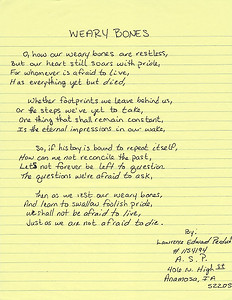 WEARY BONES
O, how our weary bones are restless,
But our heart still soars with pride,
For whomever is afraid to live,
Has everything yet but died,
Whether footprints we leave behind us,
Or the steps we've yet to take,
One thing that shall remain constant,
Is the eternal impressions in our wake,
So, if history is bound to repeat itself,
How can we not reconcile the past,
Let's not forever be left to question
The questions we're afraid to ask,
Then as we rest our weary bones,
And learn to swallow foolish pride,
We shall not be afraid to live,
Just as we are not afraid to die.
By:
Lawrence Edward
# 1154194
A. S. P.
406 N. High St
Anamosa, IA
52205